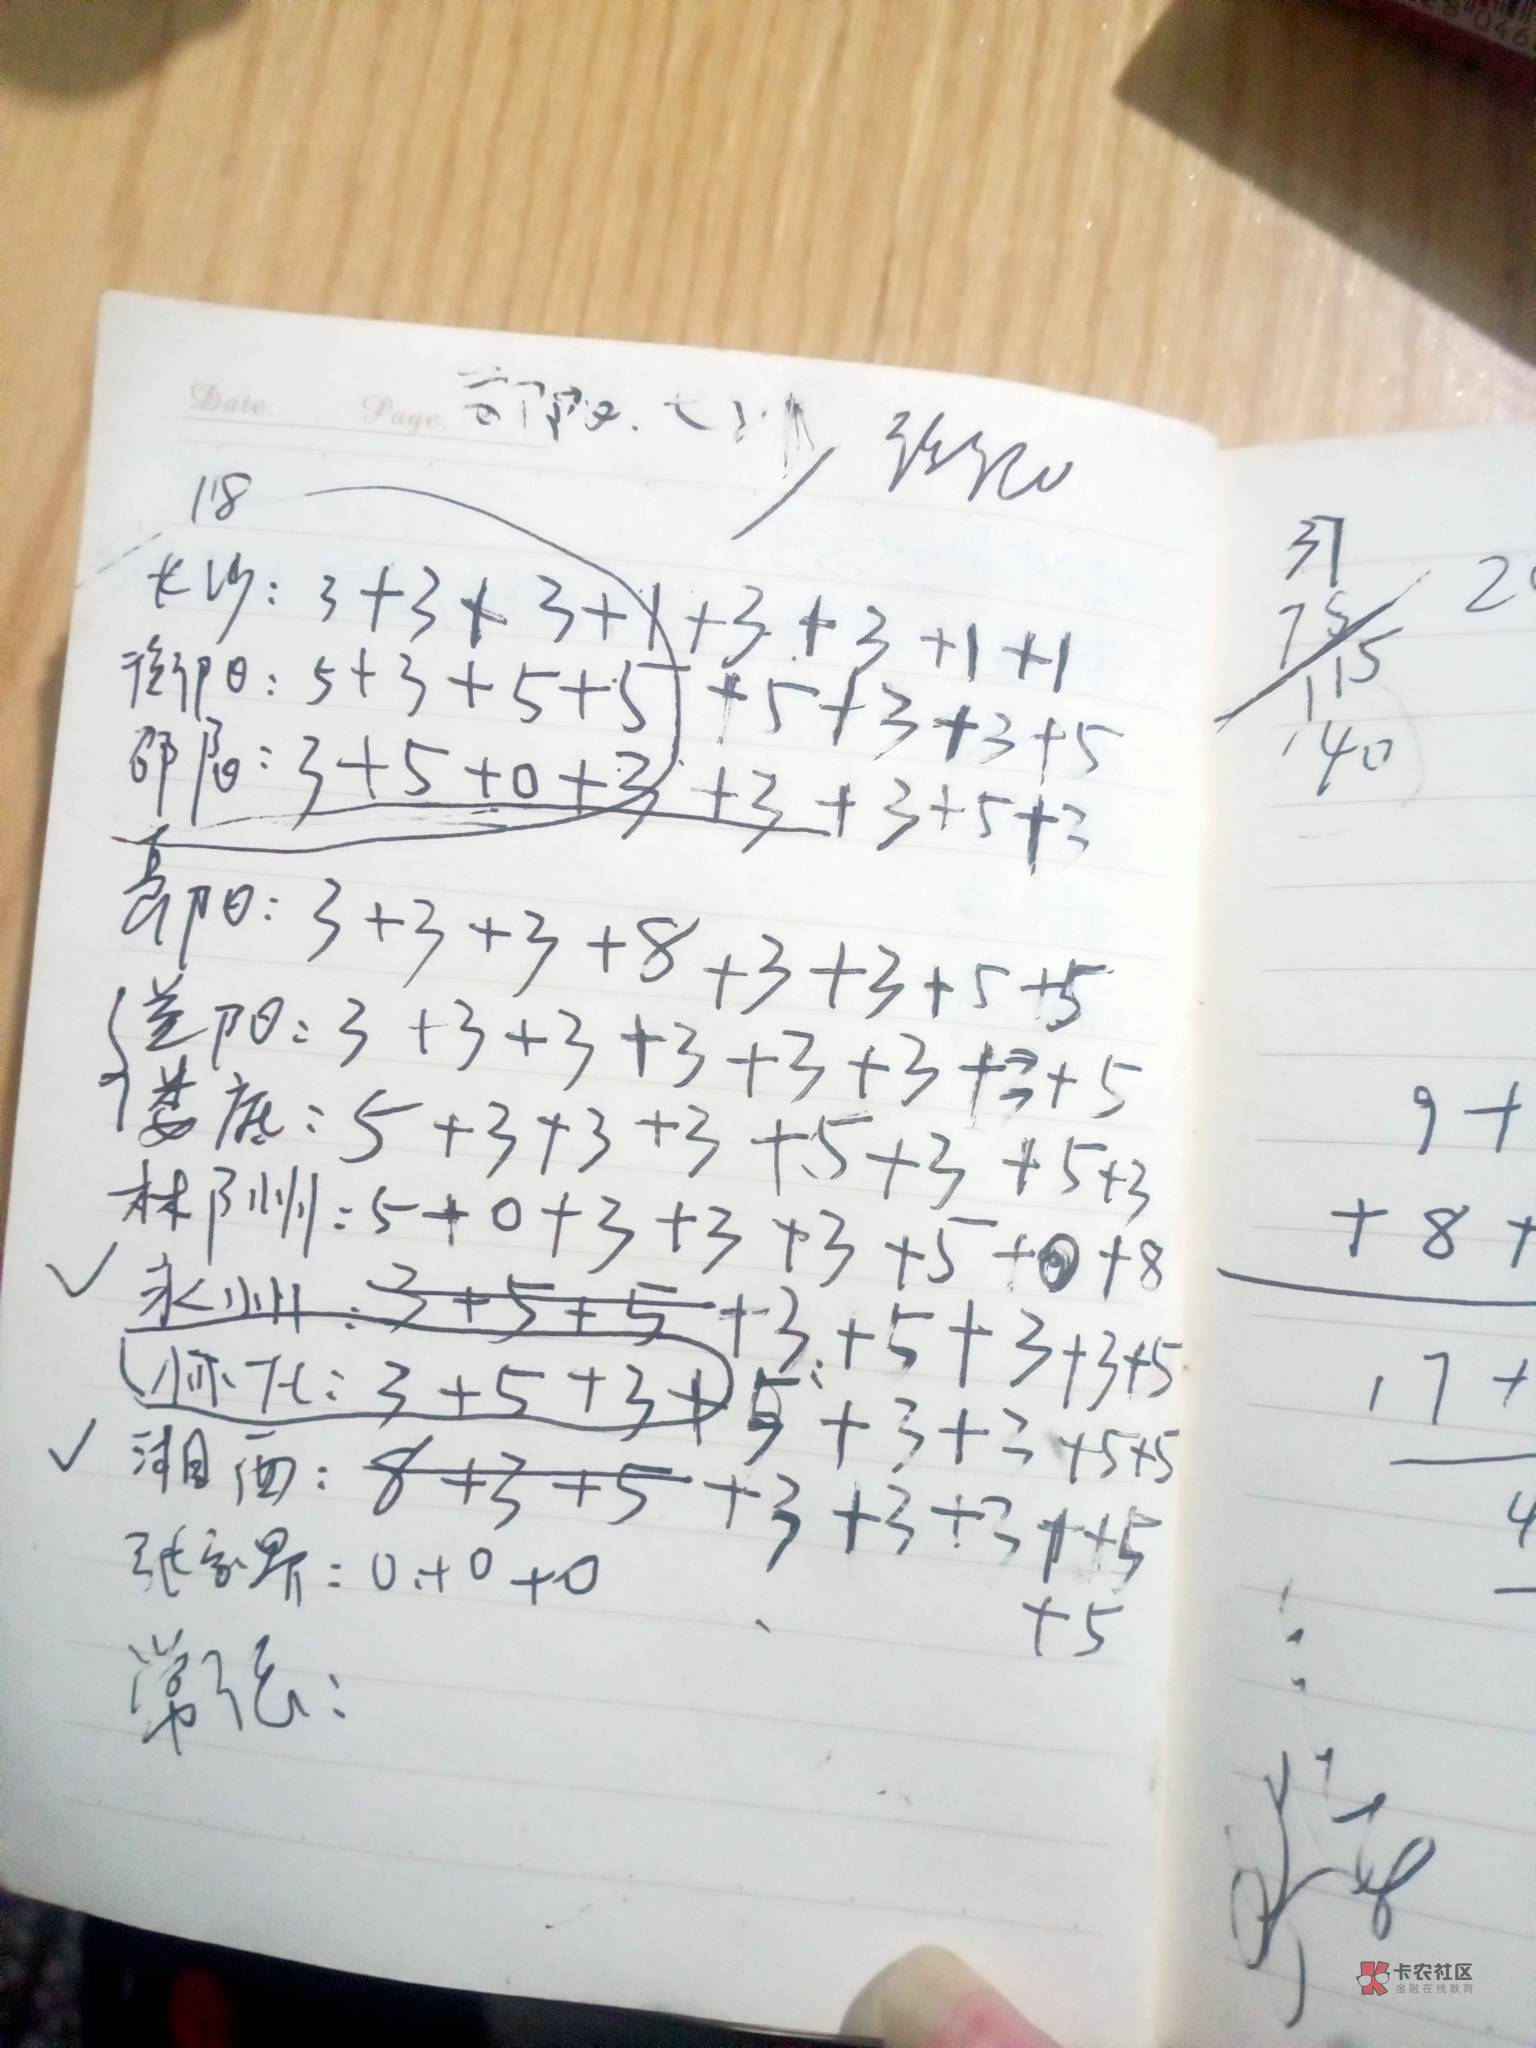 Date. Page.
18
长沙: 3+3+3+1+3+3+1+1
衡阳: 5+3+5+5+5+3+3+5
邵阳: 3+5+0+3+3+3+5+3
岳阳: 3+3+3+8+3+3+5+5
益阳: 3+3+3+3+3+3+3+5
娄底: 5+3+3+3+5+3+5+3
林阝州: 5+0+3+3+3+5+0+8
✓ 永州: 3+5+5+3+5+3+3+5
怀化: 3+5+3+5+3+3+5+5
✓ 湘西: 8+3+5+3+3+3+5
+5
张家界: 0+0+0
常张:
37
75
115
140
20
9+
+8+
17+
4
卡农社区
金融在线教育